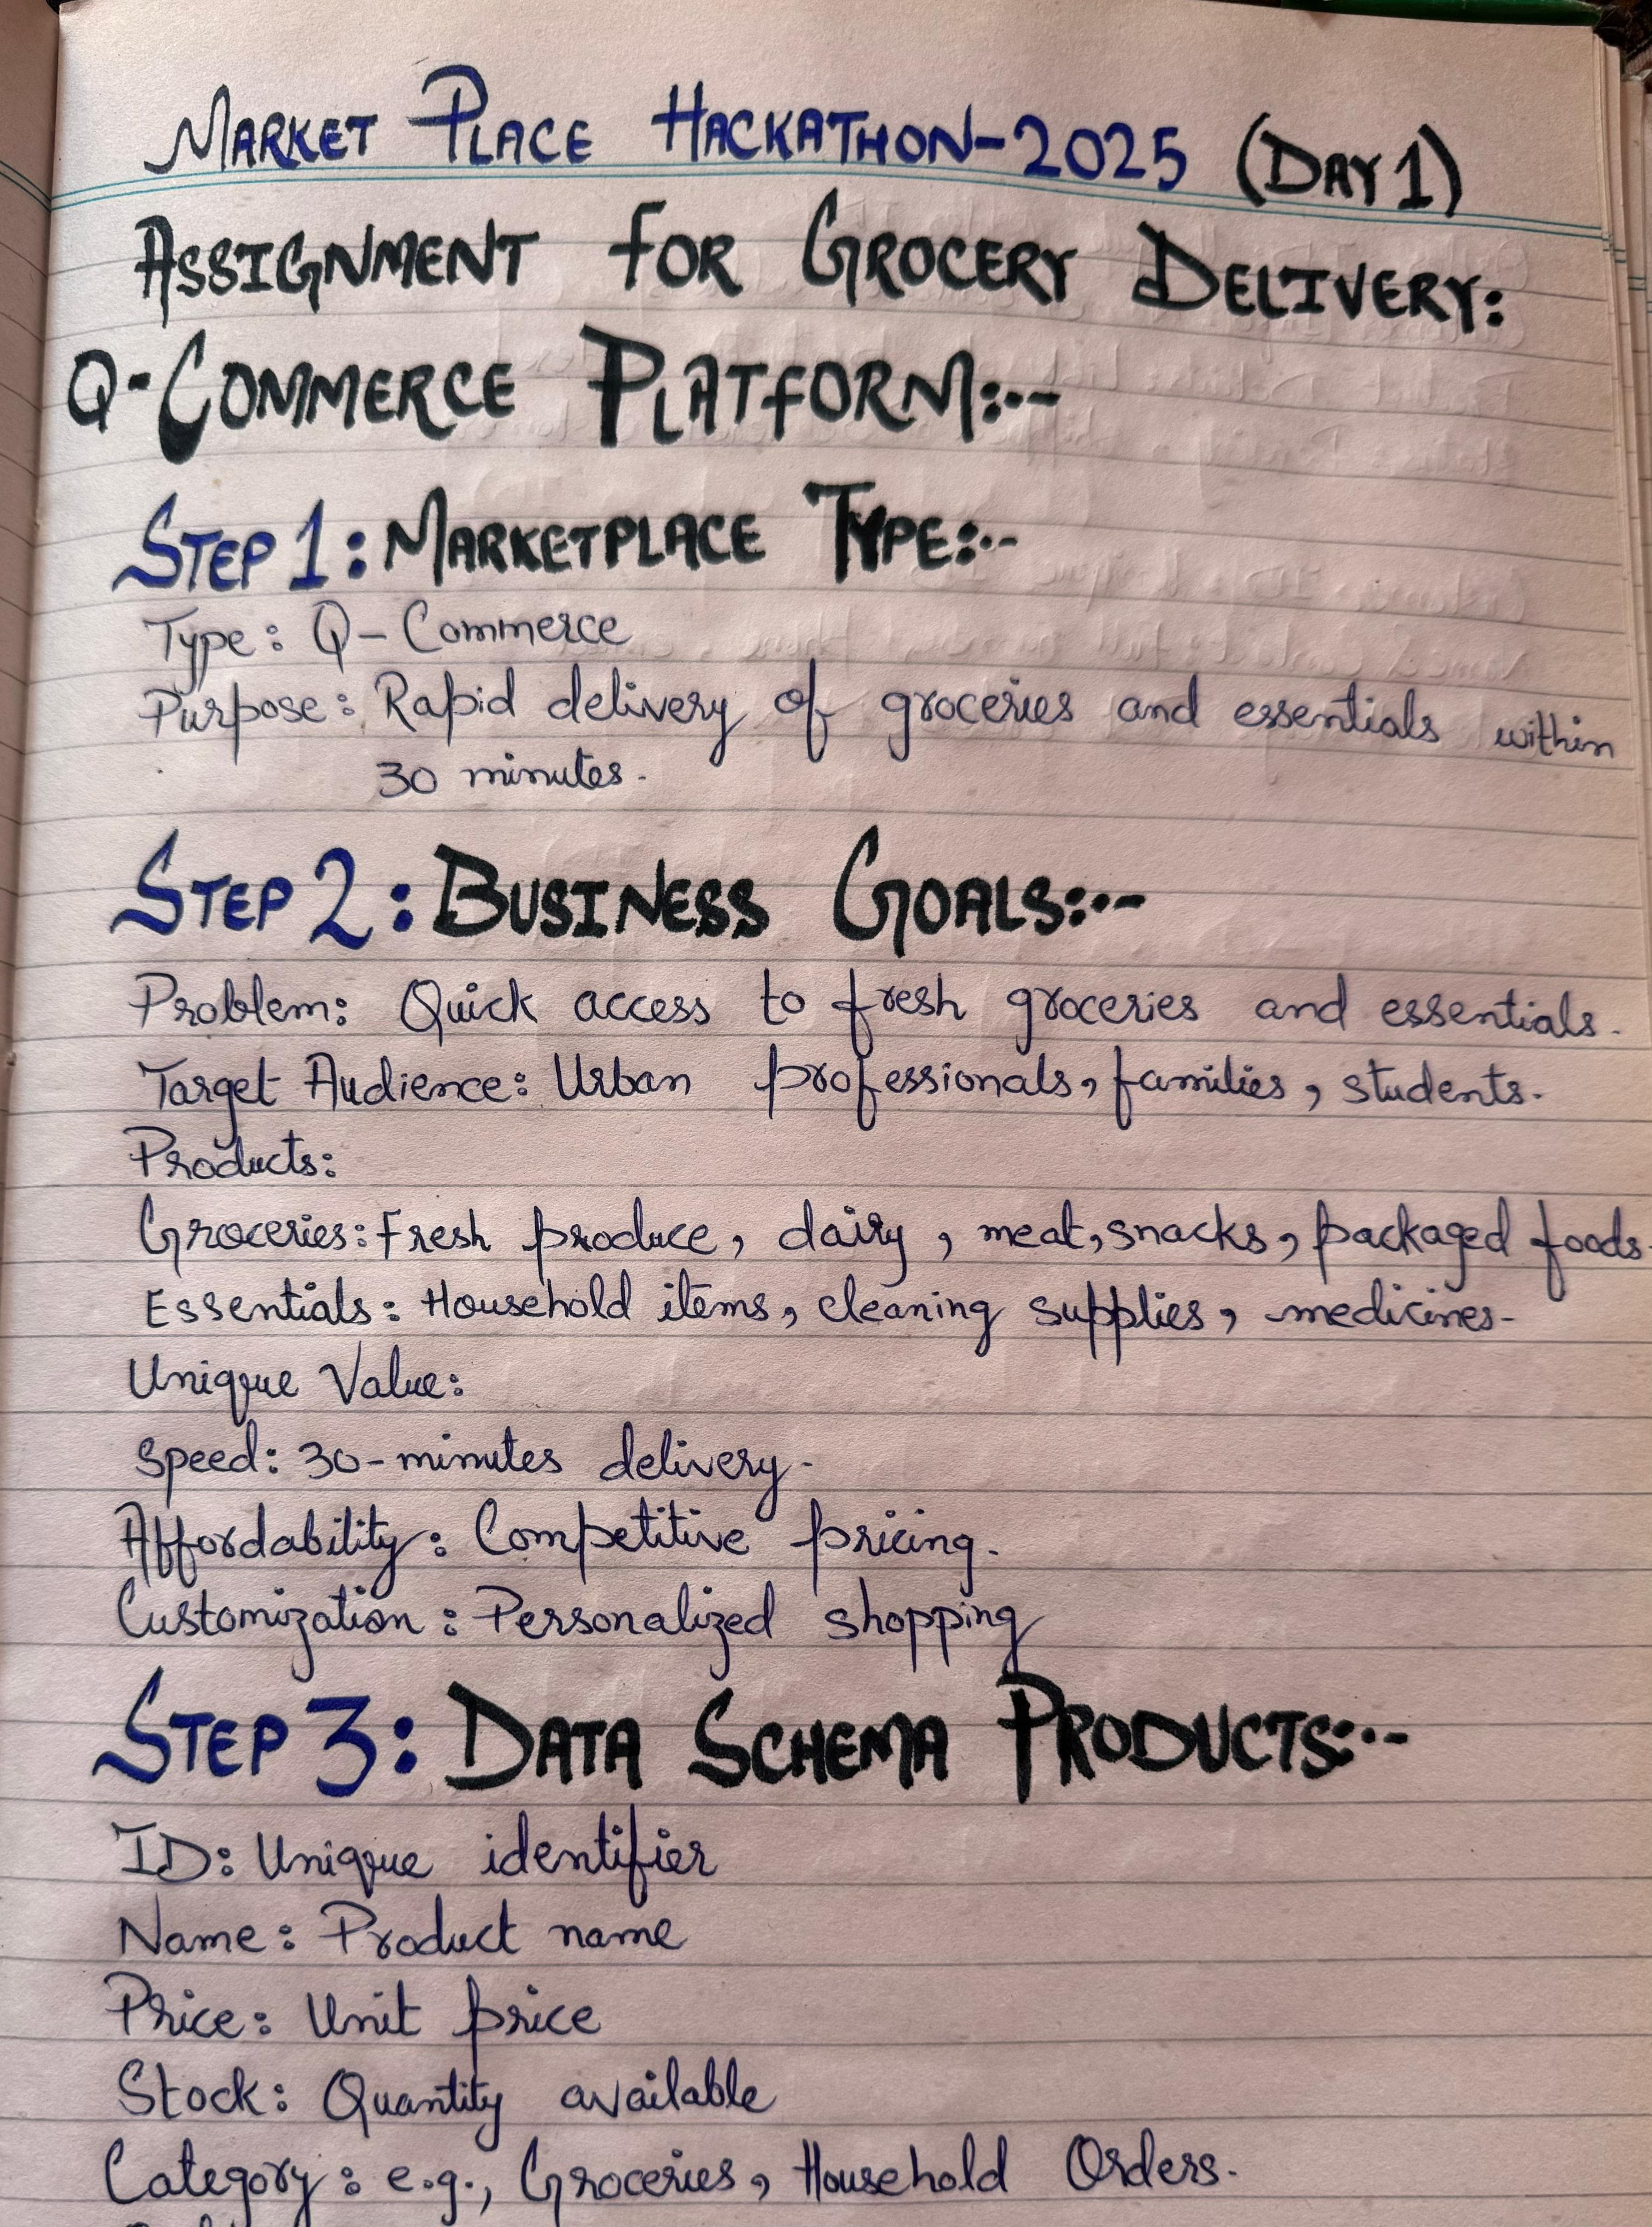 MARKET PLACE HACKATHON-2025 (DAY 1)
ASSIGNMENT FOR GROCERY DELIVERY:
Q-COMMERCE PLATFORM:--
STEP 1: MARKETPLACE TYPE:--
Type: Q-Commerce
Purpose: Rapid delivery of groceries and essentials within
30 minutes.
STEP 2: BUSINESS GOALS:--
Problem: Quick access to fresh groceries and essentials.
Target Audience: Urban professionals, families, students.
Products:
Groceries: Fresh produce, dairy, meat, snacks, packaged foods.
Essentials: Household items, cleaning supplies, medicines.
Unique Value:
Speed: 30-minutes delivery.
Affordability: Competitive pricing.
Customization: Personalized shopping
STEP 3: DATA SCHEMA PRODUCTS:--
ID: Unique identifier
Name: Product name
Price: Unit price
Stock: Quantity available
Category: e.g., Groceries, Household Orders.